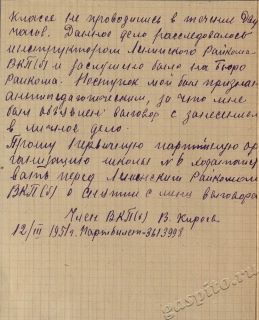 классе не проводились в течение двух
часов. Данное дело расследовалось
инструктором Ленинского Райкома
ВКП(б) и заслушено было на бюро
Райкома. Поступок мой был признан
антипедагогическим, за что мне
был объявлен выговор с занесением
в личное дело.
Прошу первичную партийную ор-
ганизацию школы № 6 ходатайст
вовать перед Ленинским Райкомом
ВКП(б) о снятии с меня выговора
Член ВКП(б) В.
12/III 1951г. Партбилет-3613998
gaspito.ru